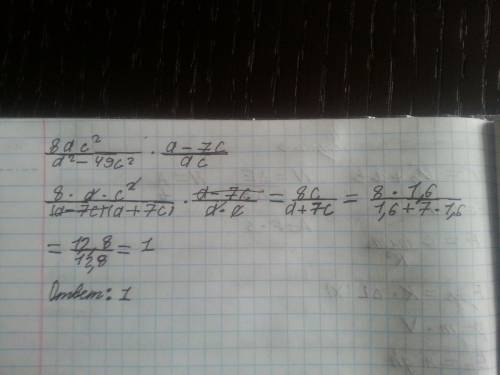 8dc²/(d² - 49c²) · (d - 7c)/(dc)
8 · d · c²/((d - 7c)(d + 7c)) · (d - 7c)/(d · c) = 8c/(d + 7c) = 8 · 1,6/(1,6 + 7 · 1,6)
= 12,8/12,8 = 1
Ответ: 1